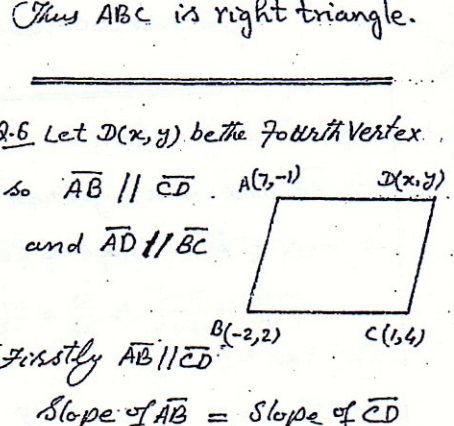 Thus ABC is right triangle.
Q.6 Let D(x,y) be the Fourth Vertex.
so AB // CD
A(7,-1) D(x,y)
and AD // BC
B(-2,2) C(1,4)
Firstly AB // CD
Slope of AB = Slope of CD